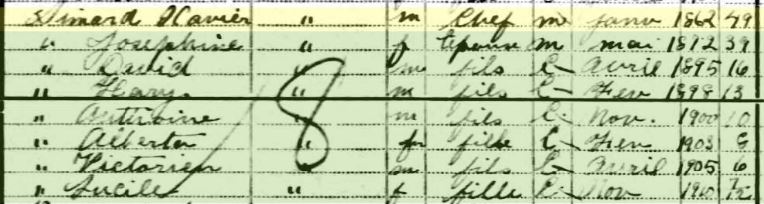 Simard Xavier " m Chef m Janv 1862 49
" Josephine " f Epouse m mai 1872 39
" David " m fils C Avril 1895 16
" Harry " m fils C Fev 1898 13
" Anthoine " m fils C Nov. 1900 10
" Alberta " f fille C Fev 1903 8
" Victorien " m fils C Avril 1905 6
" Lucile " f fille C Nov 1910
8